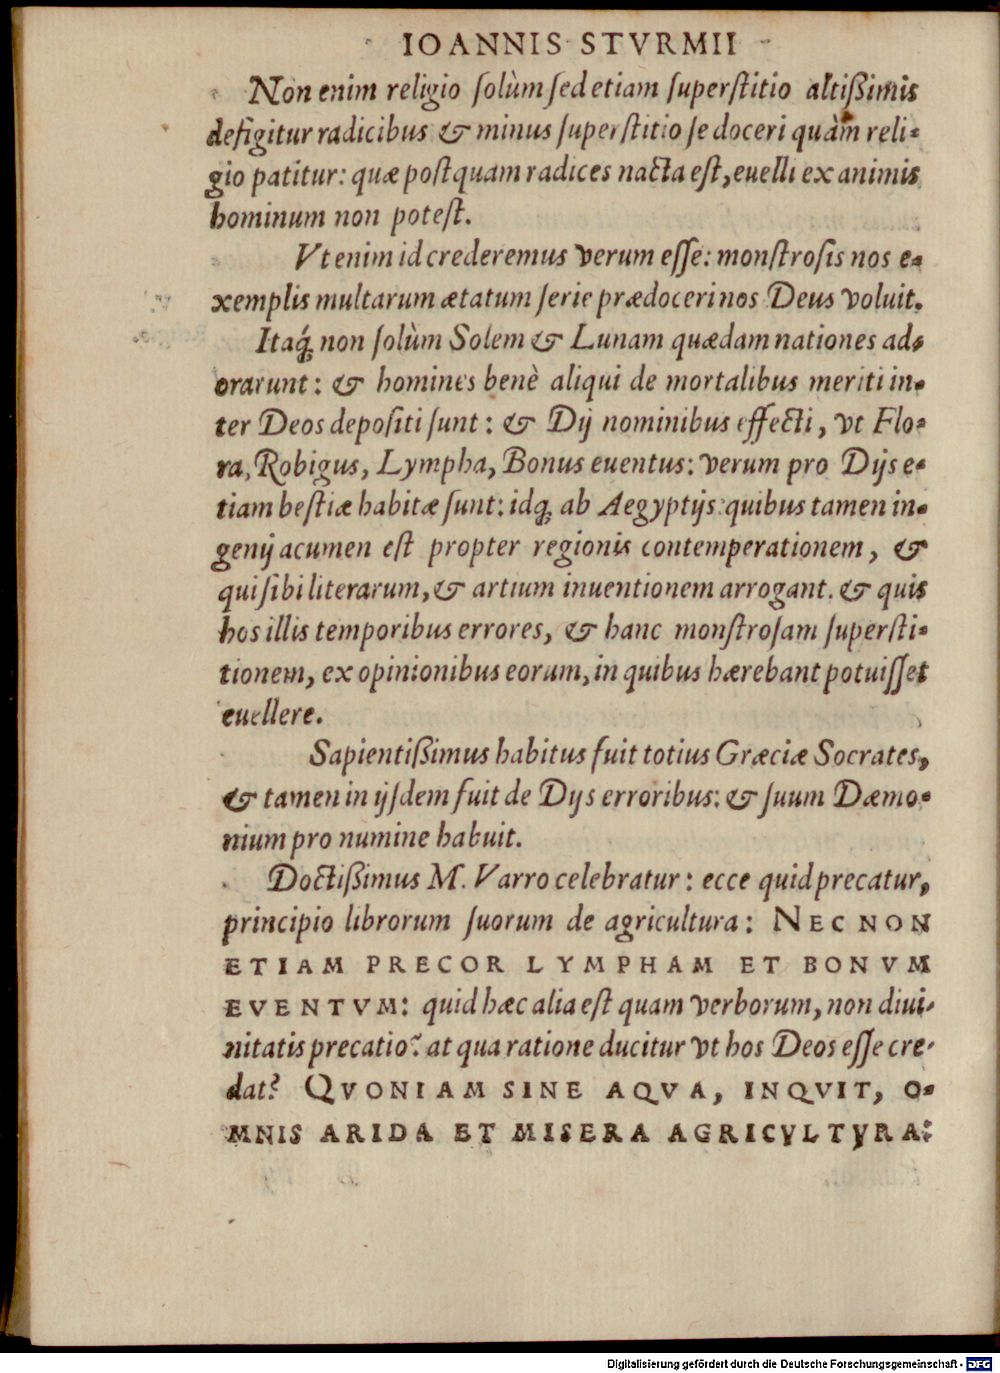 IOANNIS STVRMII
Non enim religio ſolùm ſed etiam ſuperſtitio altißimis
defigitur radicibus & minus ſuperſtitio ſe doceri quàm reli-
gio patitur: quæ poſtquam radices nacta eſt, euelli ex animis
hominum non poteſt.
Vt enim id crederemus verum eſſe: monſtroſis nos e-
xemplis multarum ætatum ſerie prædoceri nos Deus voluit.
Itaq́; non ſolùm Solem & Lunam quædam nationes ad-
orarunt: & homines benè aliqui de mortalibus meriti in-
ter Deos depoſiti ſunt: & Dij nominibus effecti, vt Flo-
ra, Robigus, Lympha, Bonus euentus: verum pro Dijs e-
tiam beſtiæ habitæ ſunt: idq; ab Aegyptijs: quibus tamen in-
genij acumen eſt propter regionis contemperationem, &
qui ſibi literarum, & artium inuentionem arrogant. & quis
hos illis temporibus errores, & hanc monſtroſam ſuperſti-
tionem, ex opinionibus eorum, in quibus hærebant potuiſſet
euellere.
Sapientißimus habitus fuit totius Græciæ Socrates,
& tamen in ijſdem fuit de Dijs erroribus: & ſuum Dæmo-
nium pro numine habuit.
Doctißimus M. Varro celebratur: ecce quid precatur,
principio librorum ſuorum de agricultura: NEC NON
ETIAM PRECOR LYMPHAM ET BONVM
EVENTVM: quid hæc alia eſt quam verborum, non diui-
nitatis precatio? at qua ratione ducitur vt hos Deos eſſe cre-
dat? QVONIAM SINE AQVA, INQVIT, O-
MNIS ARIDA ET MISERA AGRICVLTVRA:
Digitalisierung gefördert durch die Deutsche Forschungsgemeinschaft - DFG